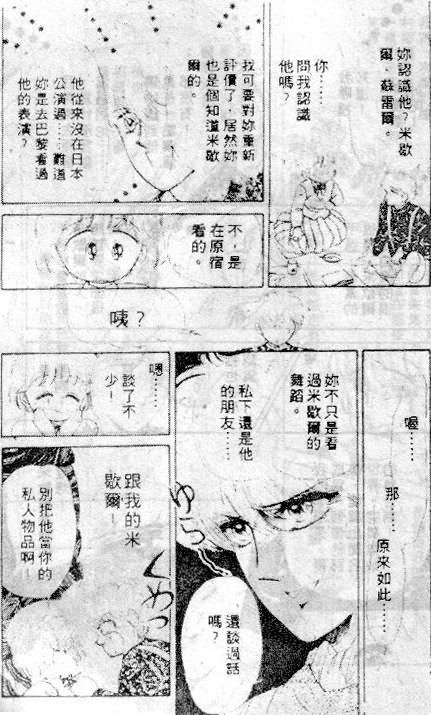 妳認識他？米歇
爾．蘇雷爾。
你……
問我認識
他嗎？
我可要對妳重新
評價了，居然妳
也是個知道米歇
爾的。
他從來沒在日本
公演過……難道
妳是去巴黎看過
他的表演？
不，是
在原宿
看的。
咦？
喔……
那……
原來如此……
妳不只是看
過米歇爾的
舞蹈。
私下還是他
的朋友……
ゆらっ
還談過話
嗎？
嗯……
談了不
少！
跟我的米
歇爾！
ぐめっ
別把他當你的
私人物品啊！